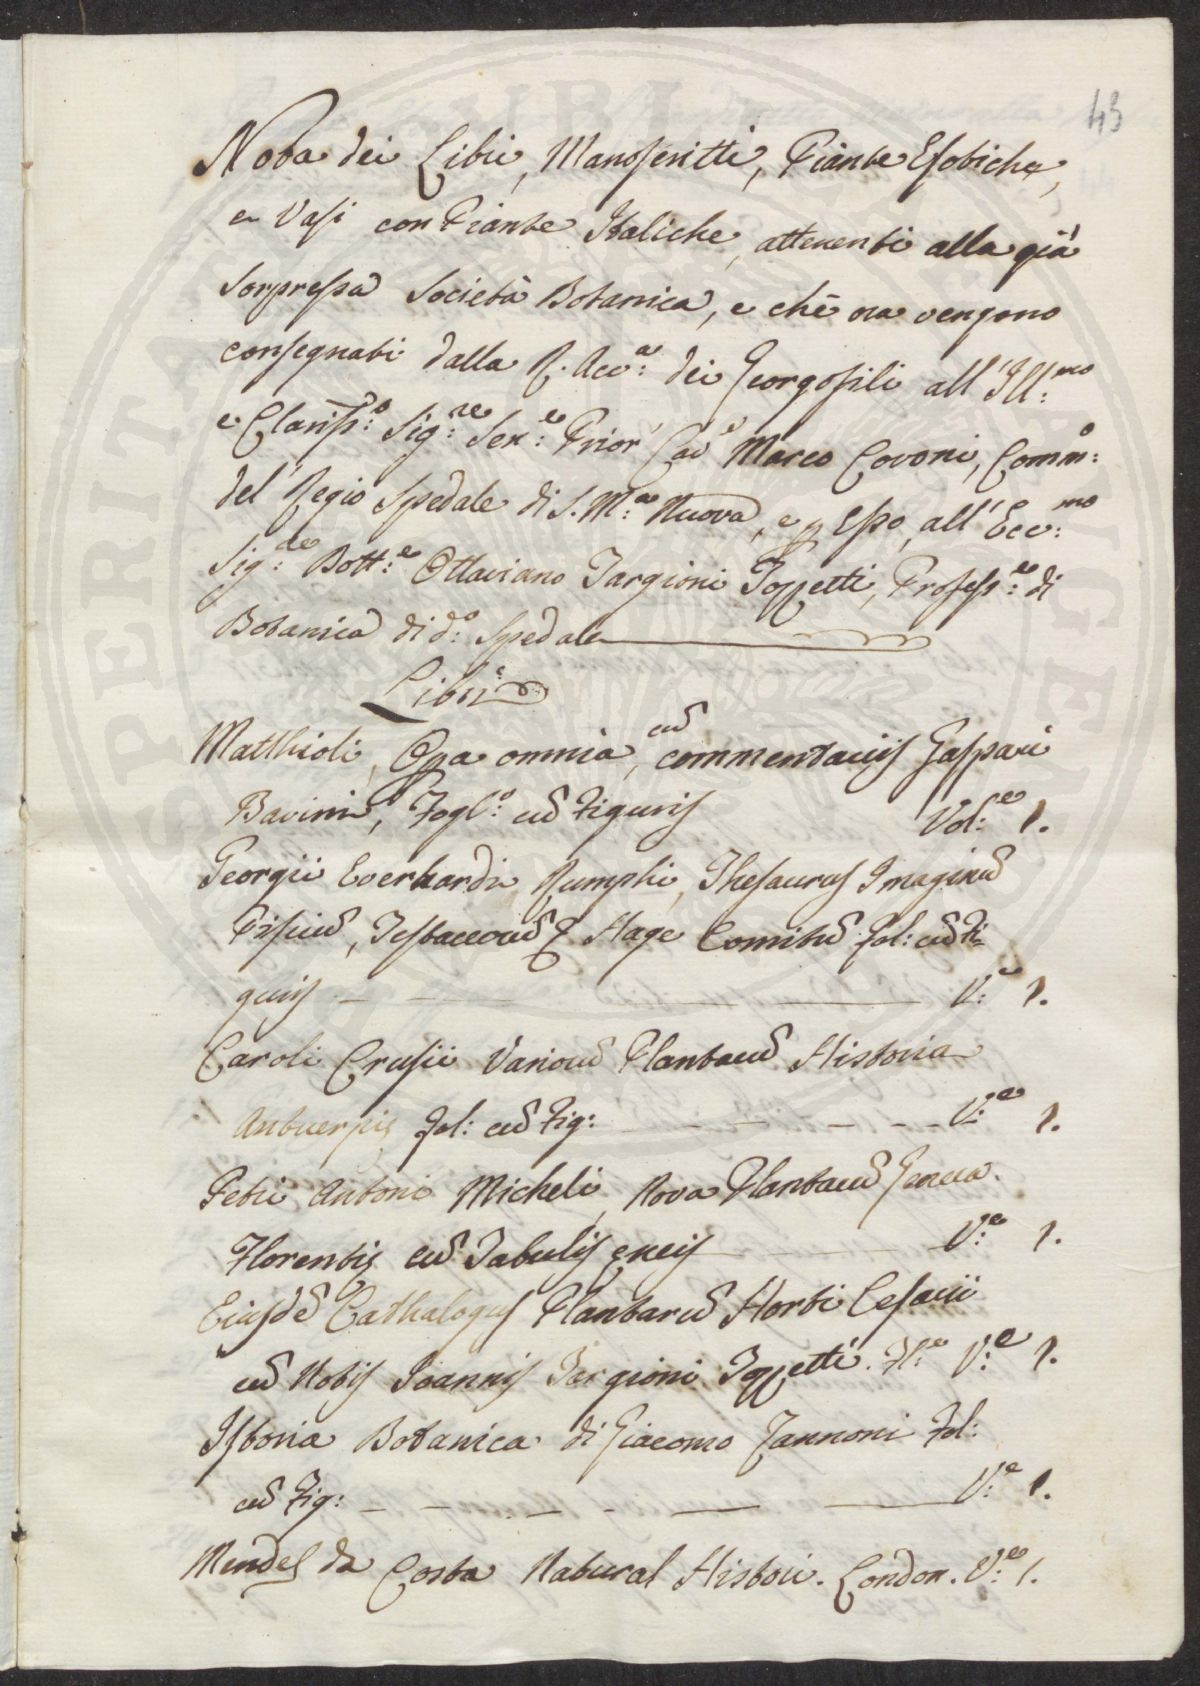 43
Nota dei Libri, Manoscritti, Piante Esotiche,
e Vasi con Piante Italiche, attenenti alla già
sorpressa Società Botanica, e che ora vengono
consegnati dalla R. Acc.a dei Georgofili all'Ill.mo
e Clariss.o Sig.re Sen.e Prior Cav.e Marco Covoni, Comm.o
del Regio Spedale di S. M.a Nuova, e p Esso, all'Ecc.mo
Sig.re Dott.e Ottaviano Targioni Tozzetti, Profess.e di
Botanica di d.o Spedale
Libri
Matthioli, Opa omnia, cū commentariis Gaspari
Bavini, Fogl.o cū Figuris Vol.e 1.
Georgii Everhardi, Rumphi, Thesaurus Imaginū
Pisciū, Testaceorū Hage Comitū fol: cū Fi=
guris V.e 1.
Caroli Crusii Variorū Plantarū Historia
Antuerpię fol: cū Fig: V.e 1.
Petri Antoni Micheli, Nova Plantarū Genera.
Florentię cū Tabulis ęneis V.e 1.
Eiusdē Cathalogus Plantarū Horti Cesarii
cū Notis Joannis Targioni Tozzetti. Fl.e V.e 1.
Istoria Botanica di Giacomo Zannoni Fol:
cū Fig: V.e 1.
Mendes da Costa Natural Histori. London. V.e 1.
SPERITAS PUBLICA AUGENDA